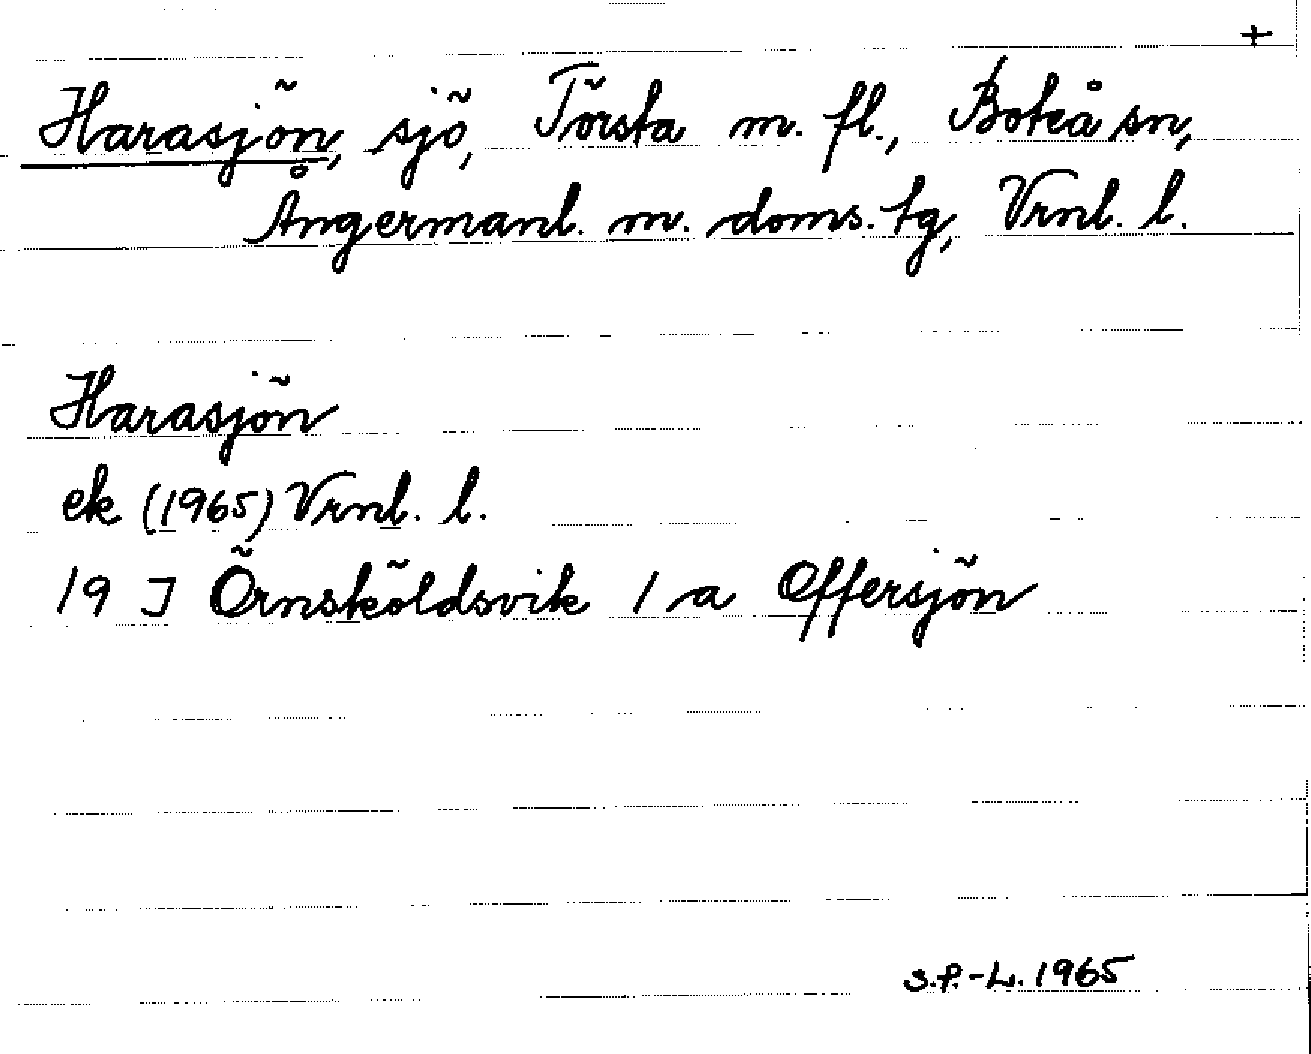 +
Harasjön, sjö, Törsta m. fl., Boteå sn,
Ångermanl. m. doms. tg, Vrnl. l.
Harasjön
ek (1965) Vrnl. l.
19 J Örnsköldsvik 1 a Offersjön
S.P.-L. 1965